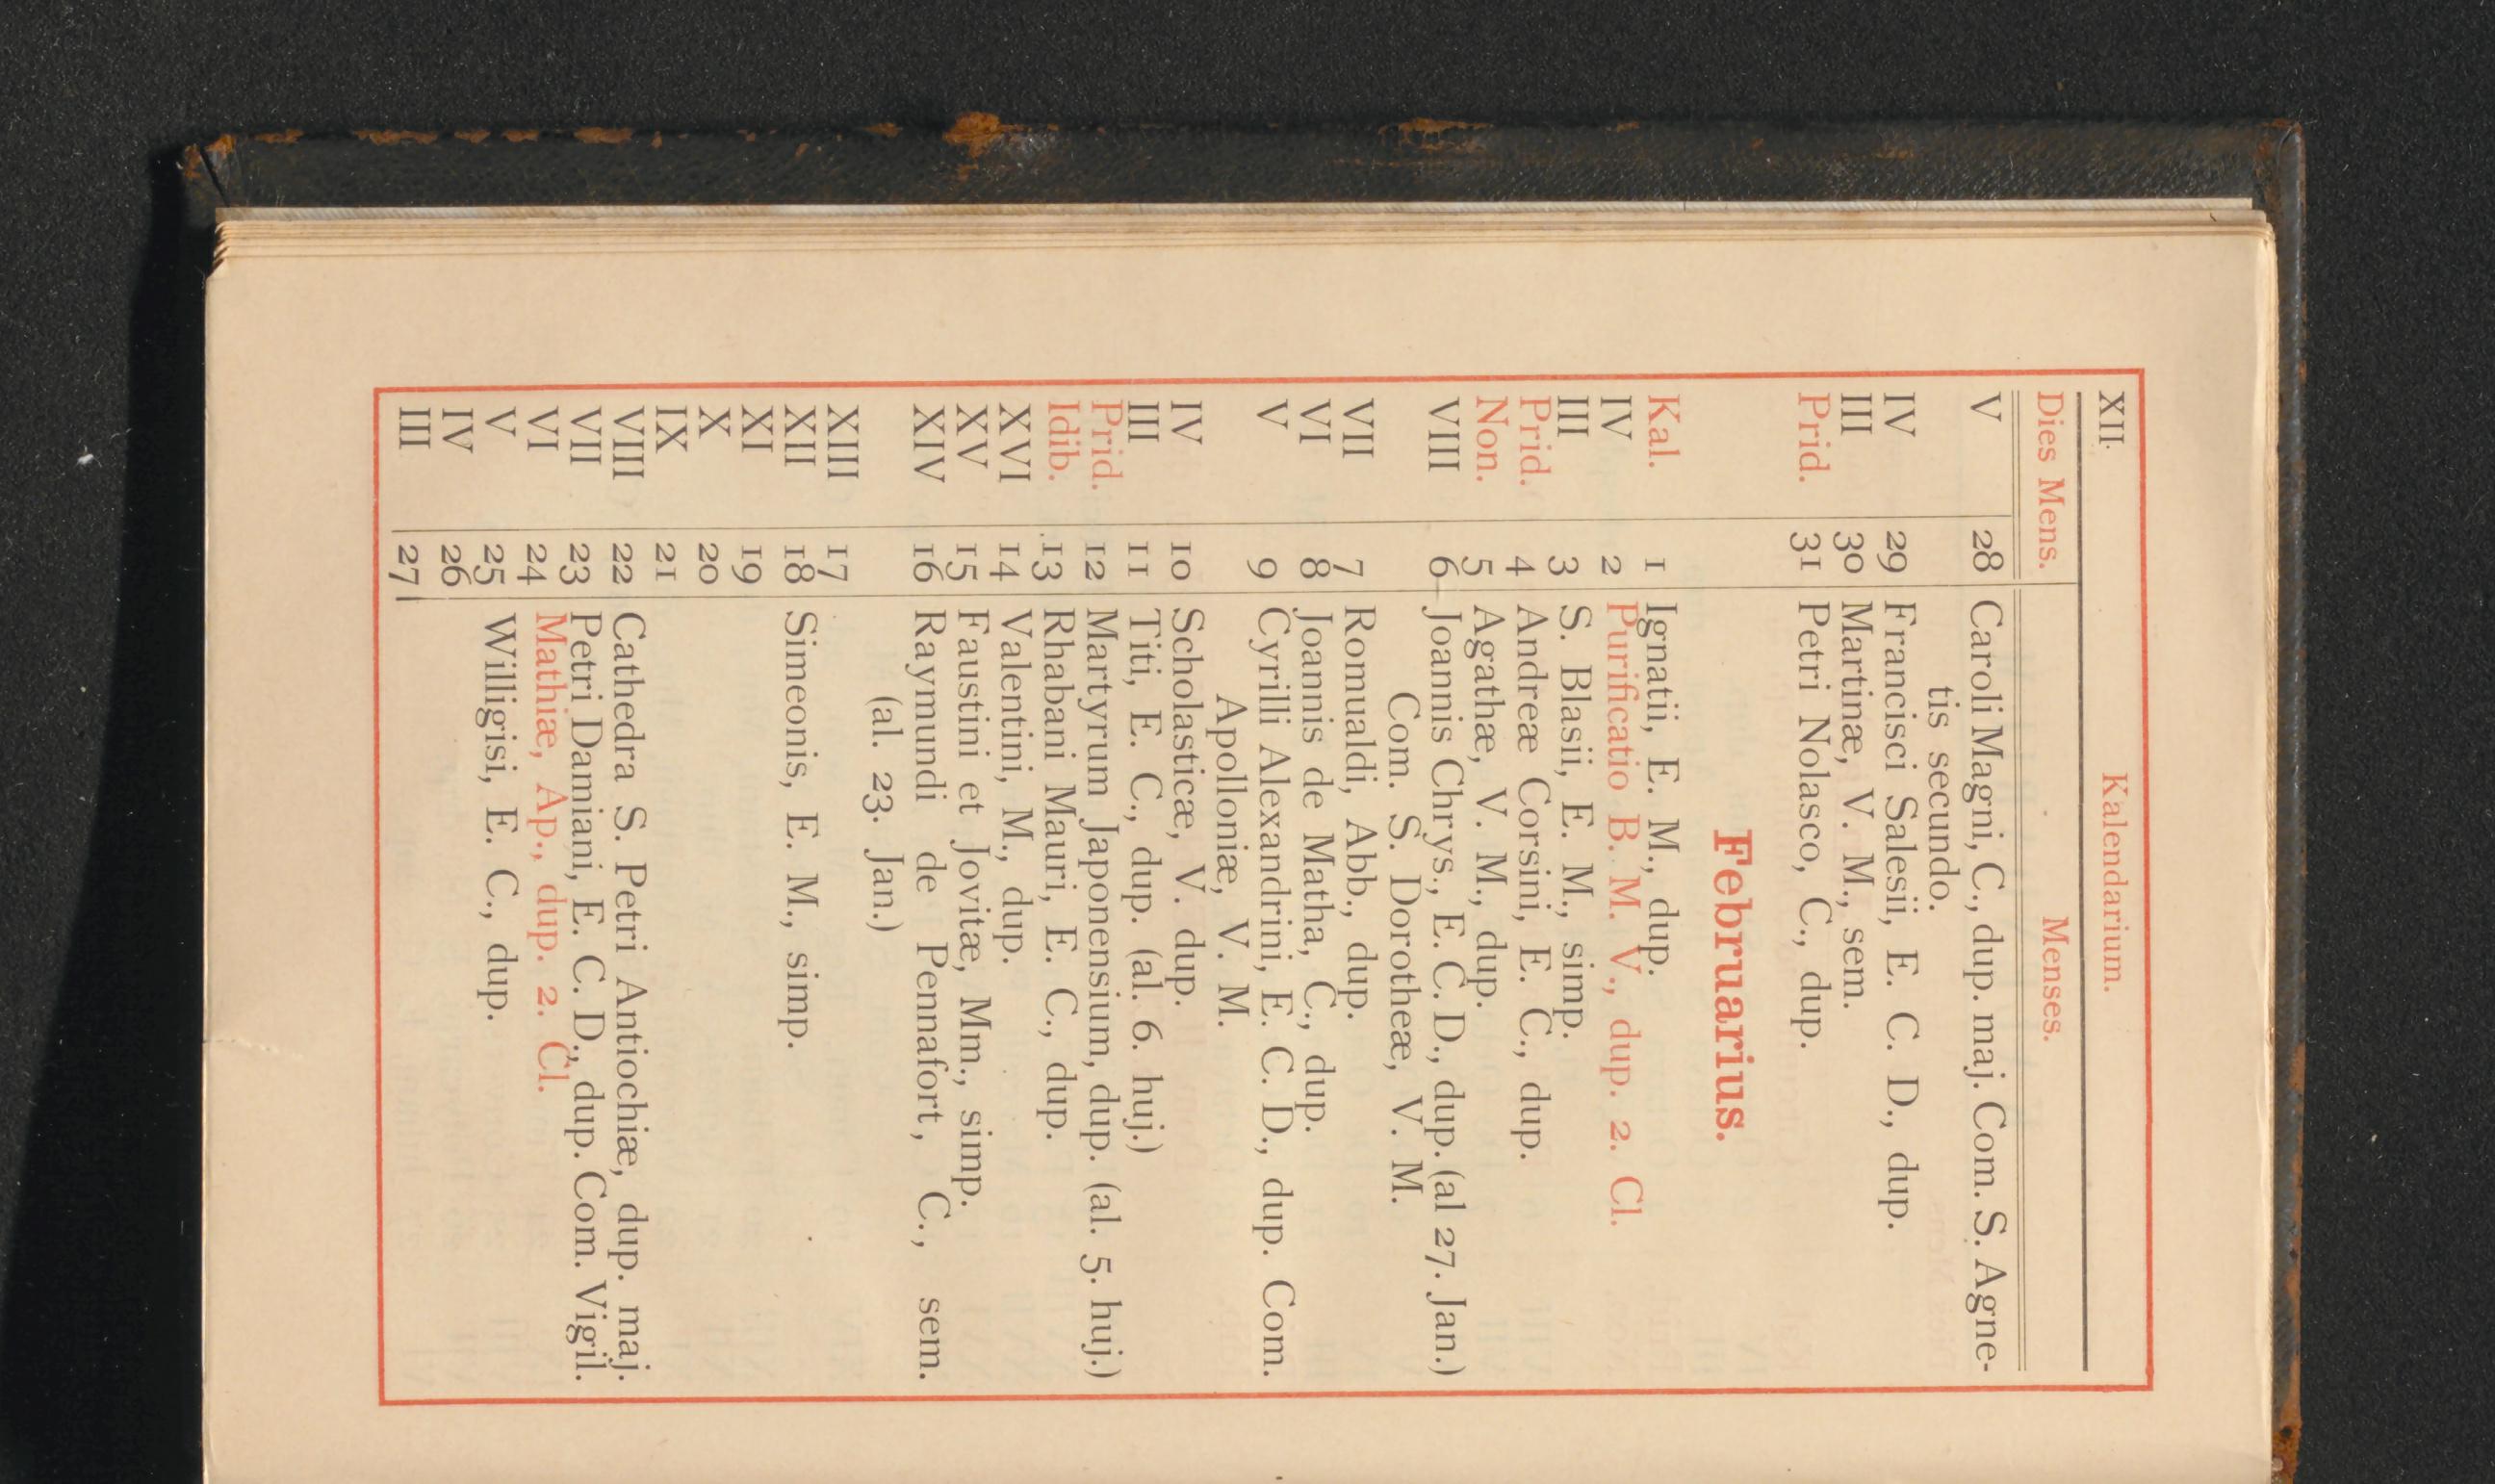 XII. Kalendarium.
Dies Mens. Menses.
V 28 Caroli Magni, C., dup. maj. Com. S. Agne-
tis secundo.
IV 29 Francisci Salesii, E. C. D., dup.
III 30 Martinæ, V. M., sem.
Prid. 31 Petri Nolasco, C., dup.
Februarius.
Kal. 1 Ignatii, E. M., dup.
IV 2 Purificatio B. M. V., dup. 2. Cl.
III 3 S. Blasii, E. M., simp.
Prid. 4 Andreæ Corsini, E. C., dup.
Non. 5 Agathæ, V. M., dup.
VIII 6 Joannis Chrys., E. C. D., dup. (al 27. Jan.)
Com. S. Dorotheæ, V. M.
VII 7 Romualdi, Abb., dup.
VI 8 Joannis de Matha, C., dup.
V 9 Cyrilli Alexandrini, E. C. D., dup. Com.
Apolloniæ, V. M.
IV 10 Scholasticæ, V. dup.
III 11 Titi, E. C., dup. (al. 6. huj.)
Prid. 12 Martyrum Japonensium, dup. (al. 5. huj.)
Idib. 13 Rhabani Mauri, E. C., dup.
XVI 14 Valentini, M., dup.
XV 15 Faustini et Jovitæ, Mm., simp.
XIV 16 Raymundi de Pennafort, C., sem.
(al. 23. Jan.)
XIII 17
XII 18 Simeonis, E. M., simp.
XI 19
X 20
IX 21
VIII 22 Cathedra S. Petri Antiochiæ, dup. maj.
VII 23 Petri Damiani, E. C. D., dup. Com. Vigil.
VI 24 Mathiæ, Ap., dup. 2. Cl.
V 25 Willigisi, E. C., dup.
IV 26
III 27